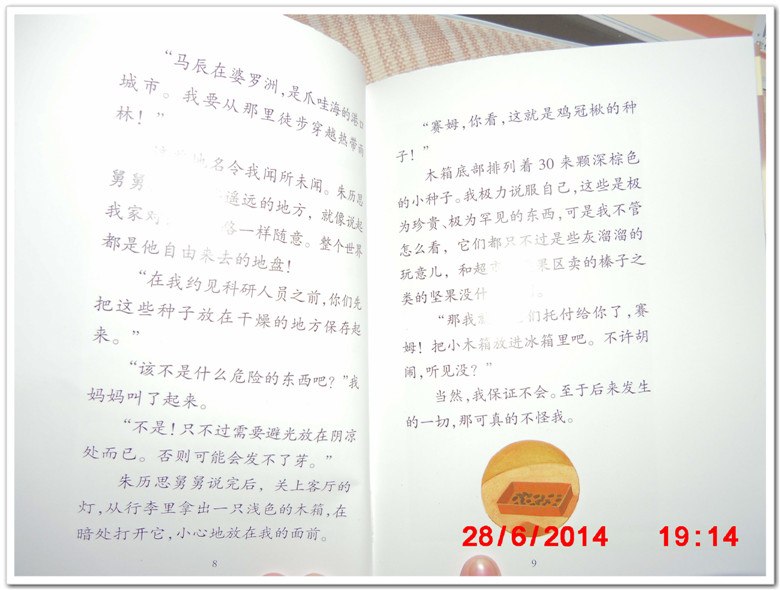 “马辰在婆罗洲，是爪哇海的港口
城市。我要从那里徒步穿越热带雨
林！”
地名令我闻所未闻。朱历思
舅舅 遥远的地方，就像说起
我家对 一样随意。整个世界
都是他自由来去的地盘！
“在我约见科研人员之前，你们先
把这些种子放在干燥的地方保存起
来。”
“该不是什么危险的东西吧？”我
妈妈叫了起来。
“不是！只不过需要避光放在阴凉
处而已。否则可能会发不了芽。”
朱历思舅舅说完后，关上客厅的
灯，从行李里拿出一只浅色的木箱，在
暗处打开它，小心地放在我的面前。
8
“赛姆，你看，这就是鸡冠楸的种
子！”
木箱底部排列着 30 来颗深棕色
的小种子。我极力说服自己，这些是极
为珍贵、极为罕见的东西，可是我不管
怎么看，它们都只不过是些灰溜溜的
玩意儿，和超 果区卖的榛子之
类的坚果没什 。
“那我 们托付给你了，赛
姆！把小木箱放进冰箱里吧。不许胡
闹，听见没？”
当然，我保证不会。至于后来发生
的一切，那可真的不怪我。
9
28/6/2014 19:14